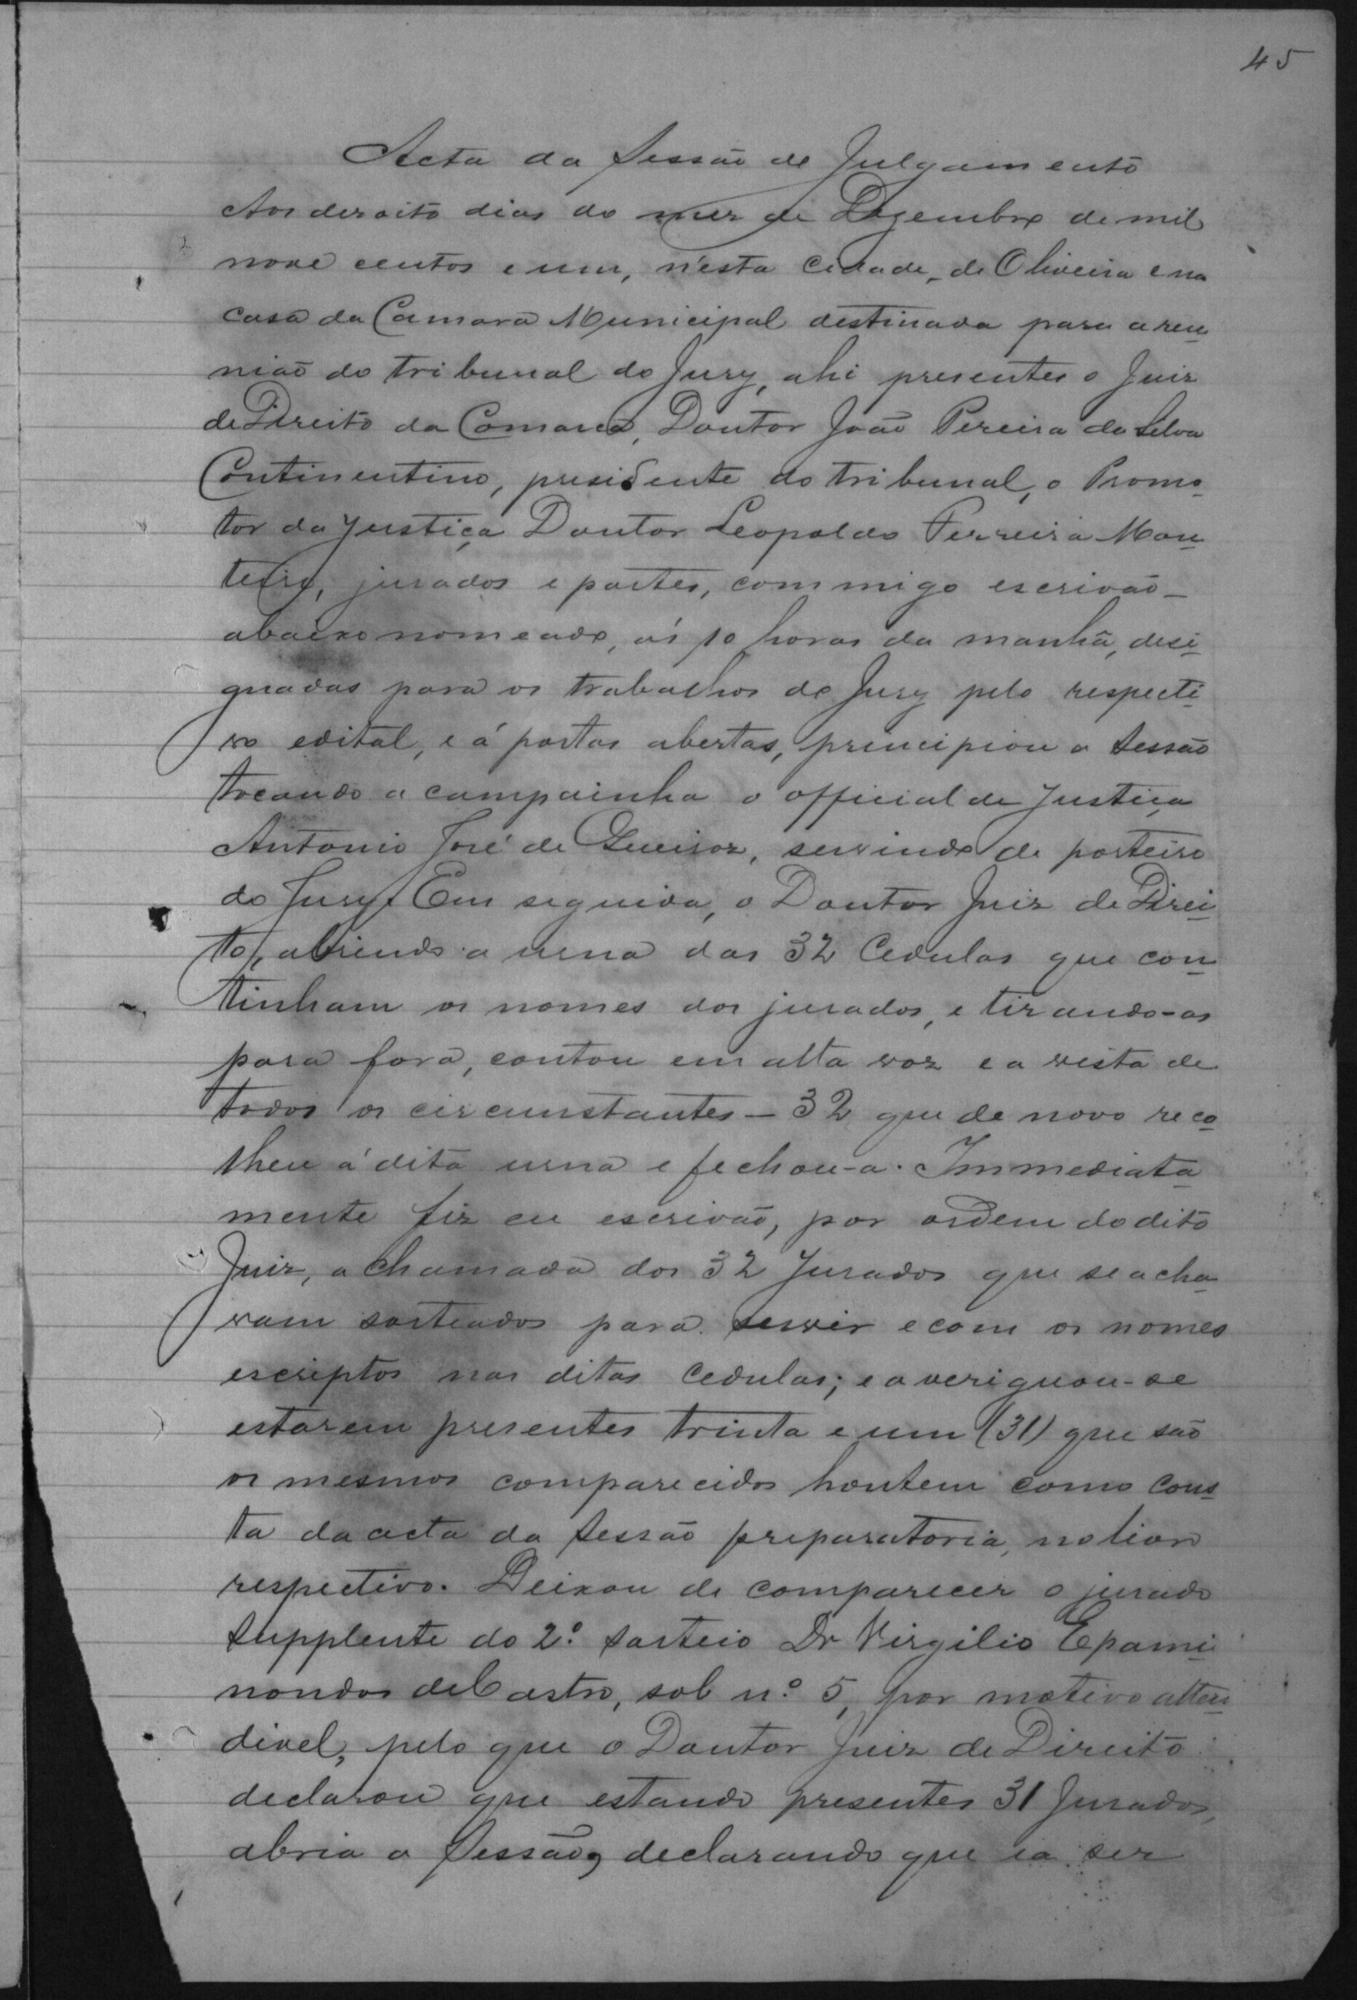 45
Acta da Sessão de Julgamento
Aos dezoito dias do mez de Dezembro de mil
nove centos e um, n'esta cidade, de Oliveira e na
casa da Camara Municipal destinada para a reu
nião do tribunal do Jury, ahi presentes o Juiz
de Direito da Comarca, Doutor João Pereira da Silva
Continentino, presidente do tribunal, o Promo-
tor da Justiça Doutor Leopoldo Ferreira Mon
teiro, jurados e partes, commigo escrivão
abaixo nomeado, ás 10 horas da manhã, desi-
gnadas para os trabalhos do Jury pelo respecti-
vo edital, e á portas abertas, principiou a Sessão
tocando a campainha o official de Justiça
Antonio José de Queiroz, servindo de porteiro
do Jury. Em seguida, o Doutor Juiz de Direi-
to, abrindo a urna das 32 Cedulas que con
tinham os nomes dos jurados, e tirando-as
para fora, contou em alta voz e a vista de
todos os circunstantes - 32 que de novo reco-
lheu á dita urna e fechou-a. Immediata-
mente fiz eu escrivão, por ordem do dito
Juiz, a chamada dos 32 Jurados que se acha-
vam sorteados para servir e com os nomes
escriptos nas ditas Cedulas; e averiguou-se
estarem presentes trinta e um (31) que são
os mesmos comparecidos hontem como cons-
ta da acta da Sessão preparatoria, no livro
respectivo. Deixou de comparecer o jurado
Supplente do 2.º Sorteio Dr Virgilio Epami-
nondas de Castro, sob n.º 5, por motivo atten
divel, pelo que o Doutor Juiz de Direito
declarou que estando presentes 31 Jurados,
abria a Sessão, declarando que ia ser